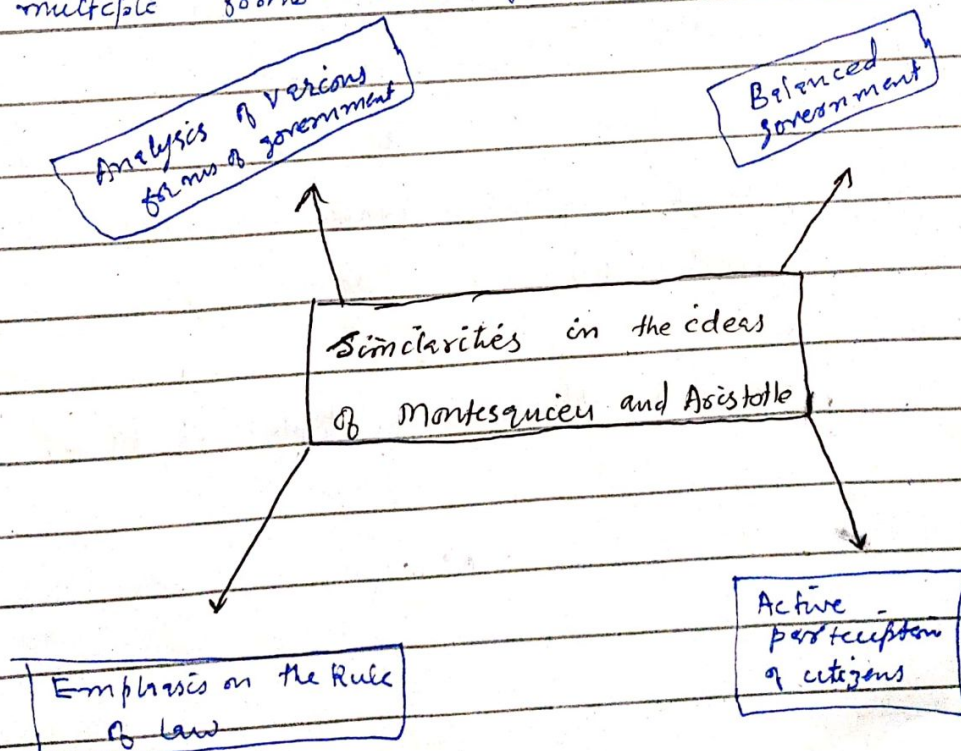 multiple
Analysis of various
forms of government
Balanced
government
Similarities in the ideas
of Montesquieu and Aristotle
Emphasis on the Rule
of Law
Active
participation
of citizens